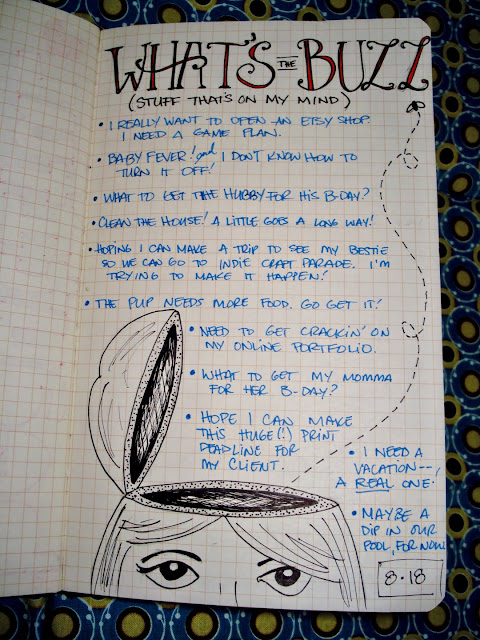 WHAT'S THE BUZZ
(STUFF THAT'S ON MY MIND)
• I REALLY WANT TO OPEN AN ETSY SHOP.
I NEED A GAME PLAN.
• BABY FEVER! and I DON'T KNOW HOW TO
TURN IT OFF!
• WHAT TO GET THE HUBBY FOR HIS B-DAY?
• CLEAN THE HOUSE! A LITTLE GOES A LONG WAY!
• HOPING I CAN MAKE A TRIP TO SEE MY BESTIE
SO WE CAN GO TO INDIE CRAFT PARADE. I'M
TRYING TO MAKE IT HAPPEN!
• THE PUP NEEDS MORE FOOD. GO GET IT!
• NEED TO GET CRACKIN' ON
MY ONLINE PORTFOLIO.
• WHAT TO GET MY MOMMA
FOR HER B-DAY?
• HOPE I CAN MAKE
THIS HUGE(!) PRINT
DEADLINE FOR
MY CLIENT.
• I NEED A
VACATION--,
A REAL ONE.
• MAYBE A
DIP IN OUR
POOL, FOR NOW
8·18